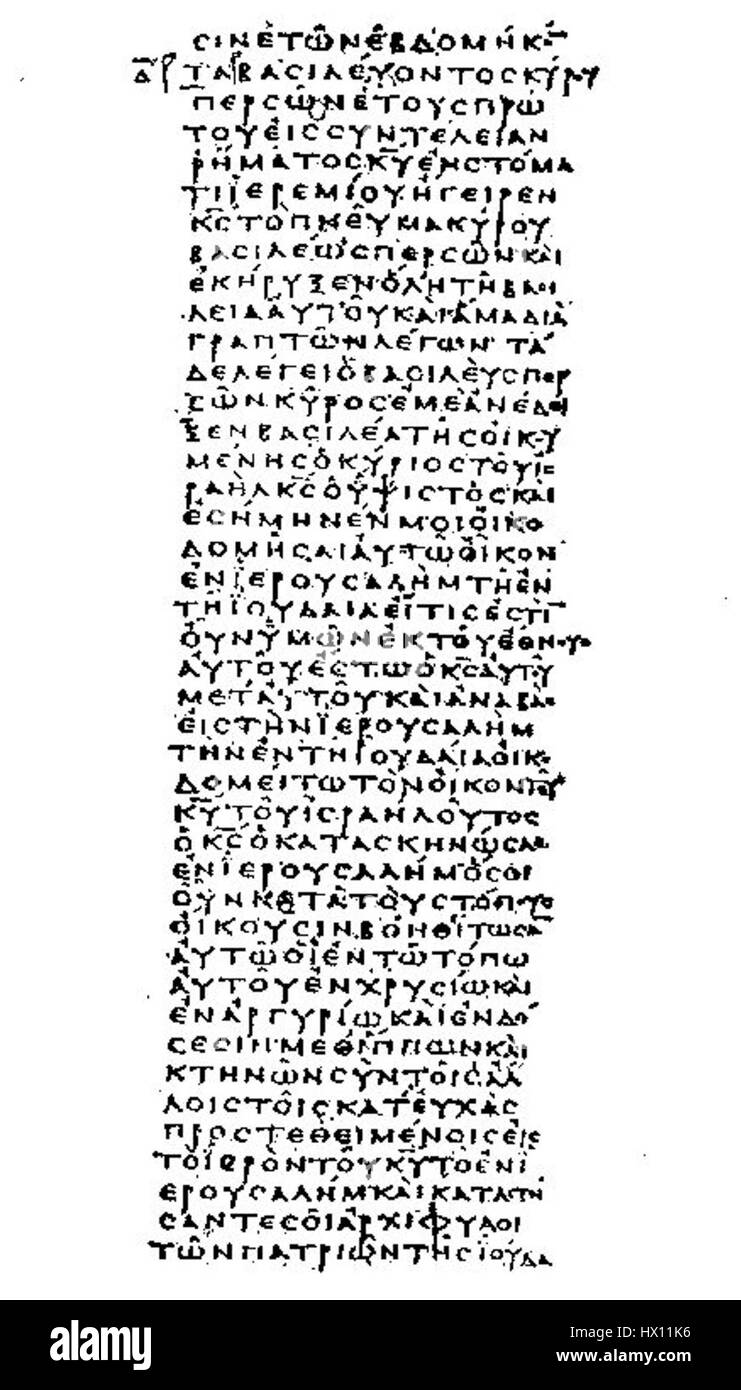 ΣΙΝ ΕΤΩΝ ΕΒΔΟΜΗΚΟΝ
ΤΑ ΒΑΣΙΛΕΥΟΝΤΟΣ ΚΥΡΟΥ
ΠΕΡΣΩΝ ΕΤΟΥΣ ΠΡΩ
ΤΟΥ ΕΙΣ ΣΥΝΤΕΛΕΙΑΝ
ΡΗΜΑΤΟΣ ΚΥ ΕΝ ΣΤΟΜΑ
ΤΙ ΙΕΡΕΜΙΟΥ ΗΓΕΙΡΕΝ
ΚΣ ΤΟ ΠΝΕΥΜΑ ΚΥΡΟΥ
ΒΑΣΙΛΕΩΣ ΠΕΡΣΩΝ ΚΑΙ
ΕΚΗΡΥΞΕΝ ΟΛΗ ΤΗ ΒΑΣΙ
ΛΕΙΑ ΑΥΤΟΥ ΚΑΙ ΑΜΑ ΔΙΑ
ΓΡΑΠΤΩΝ ΛΕΓΩΝ ΤΑ
ΔΕ ΛΕΓΕΙ Ο ΒΑΣΙΛΕΥΣ ΠΕΡ
ΣΩΝ ΚΥΡΟΣ ΕΜΕ ΑΝΕΔΕΙ
ΞΕΝ ΒΑΣΙΛΕΑ ΤΗΣ ΟΙΚΟΥ
ΜΕΝΗΣ Ο ΚΥΡΙΟΣ ΤΟΥ ΙΣ
ΡΑΗΛ ΚΣ Ο ΥΨΙΣΤΟΣ ΚΑΙ
ΕΣΗΜΗΝΕΝ ΜΟΙ ΟΙΚΟ
ΔΟΜΗΣΑΙ ΑΥΤΩ ΟΙΚΟΝ
ΕΝ ΙΕΡΟΥΣΑΛΗΜ ΤΗ ΕΝ
ΤΗ ΙΟΥΔΑΙΑ ΕΙ ΤΙΣ ΕΣΤΙΝ
ΟΥΝ ΥΜΩΝ ΕΚ ΤΟΥ ΕΘΝΟΥΣ
ΑΥΤΟΥ ΕΣΤΩ Ο ΚΣ ΑΥΤΟΥ
ΜΕΤ ΑΥΤΟΥ ΚΑΙ ΑΝΑΒΑΣ
ΕΙΣ ΤΗΝ ΙΕΡΟΥΣΑΛΗΜ
ΤΗΝ ΕΝ ΤΗ ΙΟΥΔΑΙΑ ΟΙΚΟ
ΔΟΜΕΙΤΩ ΤΟΝ ΟΙΚΟΝ ΤΟΥ
ΚΥ ΤΟΥ ΙΣΡΑΗΛ ΟΥΤΟΣ
Ο ΚΣ Ο ΚΑΤΑΣΚΗΝΩΣΑΣ
ΕΝ ΙΕΡΟΥΣΑΛΗΜ ΟΣΟΙ
ΟΥΝ ΚΑΤΑ ΤΟΥΣ ΤΟΠΟΥΣ
ΟΙΚΟΥΣΙΝ ΒΟΗΘΙΤΩΣΑΝ
ΑΥΤΩ ΟΙ ΕΝ ΤΩ ΤΟΠΩ
ΑΥΤΟΥ ΕΝ ΧΡΥΣΙΩ ΚΑΙ
ΕΝ ΑΡΓΥΡΙΩ ΚΑΙ ΕΝ ΔΟ
ΣΕΣΙΝ ΜΕΘ ΙΠΠΩΝ ΚΑΙ
ΚΤΗΝΩΝ ΣΥΝ ΤΟΙΣ ΑΛ
ΛΟΙΣ ΤΟΙΣ ΚΑΤ ΕΥΧΑΣ
ΠΡΟΣΤΕΘΕΙΜΕΝΟΙΣ ΕΙΣ
ΤΟ ΙΕΡΟΝ ΤΟΥ ΚΥ ΤΟ ΕΝ Ι
ΕΡΟΥΣΑΛΗΜ ΚΑΙ ΚΑΤΑΣΤΗ
ΣΑΝΤΕΣ ΟΙ ΑΡΧΙΦΥΛΟΙ
ΤΩΝ ΠΑΤΡΙΩΝ ΤΗΣ ΙΟΥΔΑ
alamy stock photo
HX11K6
www.alamy.com